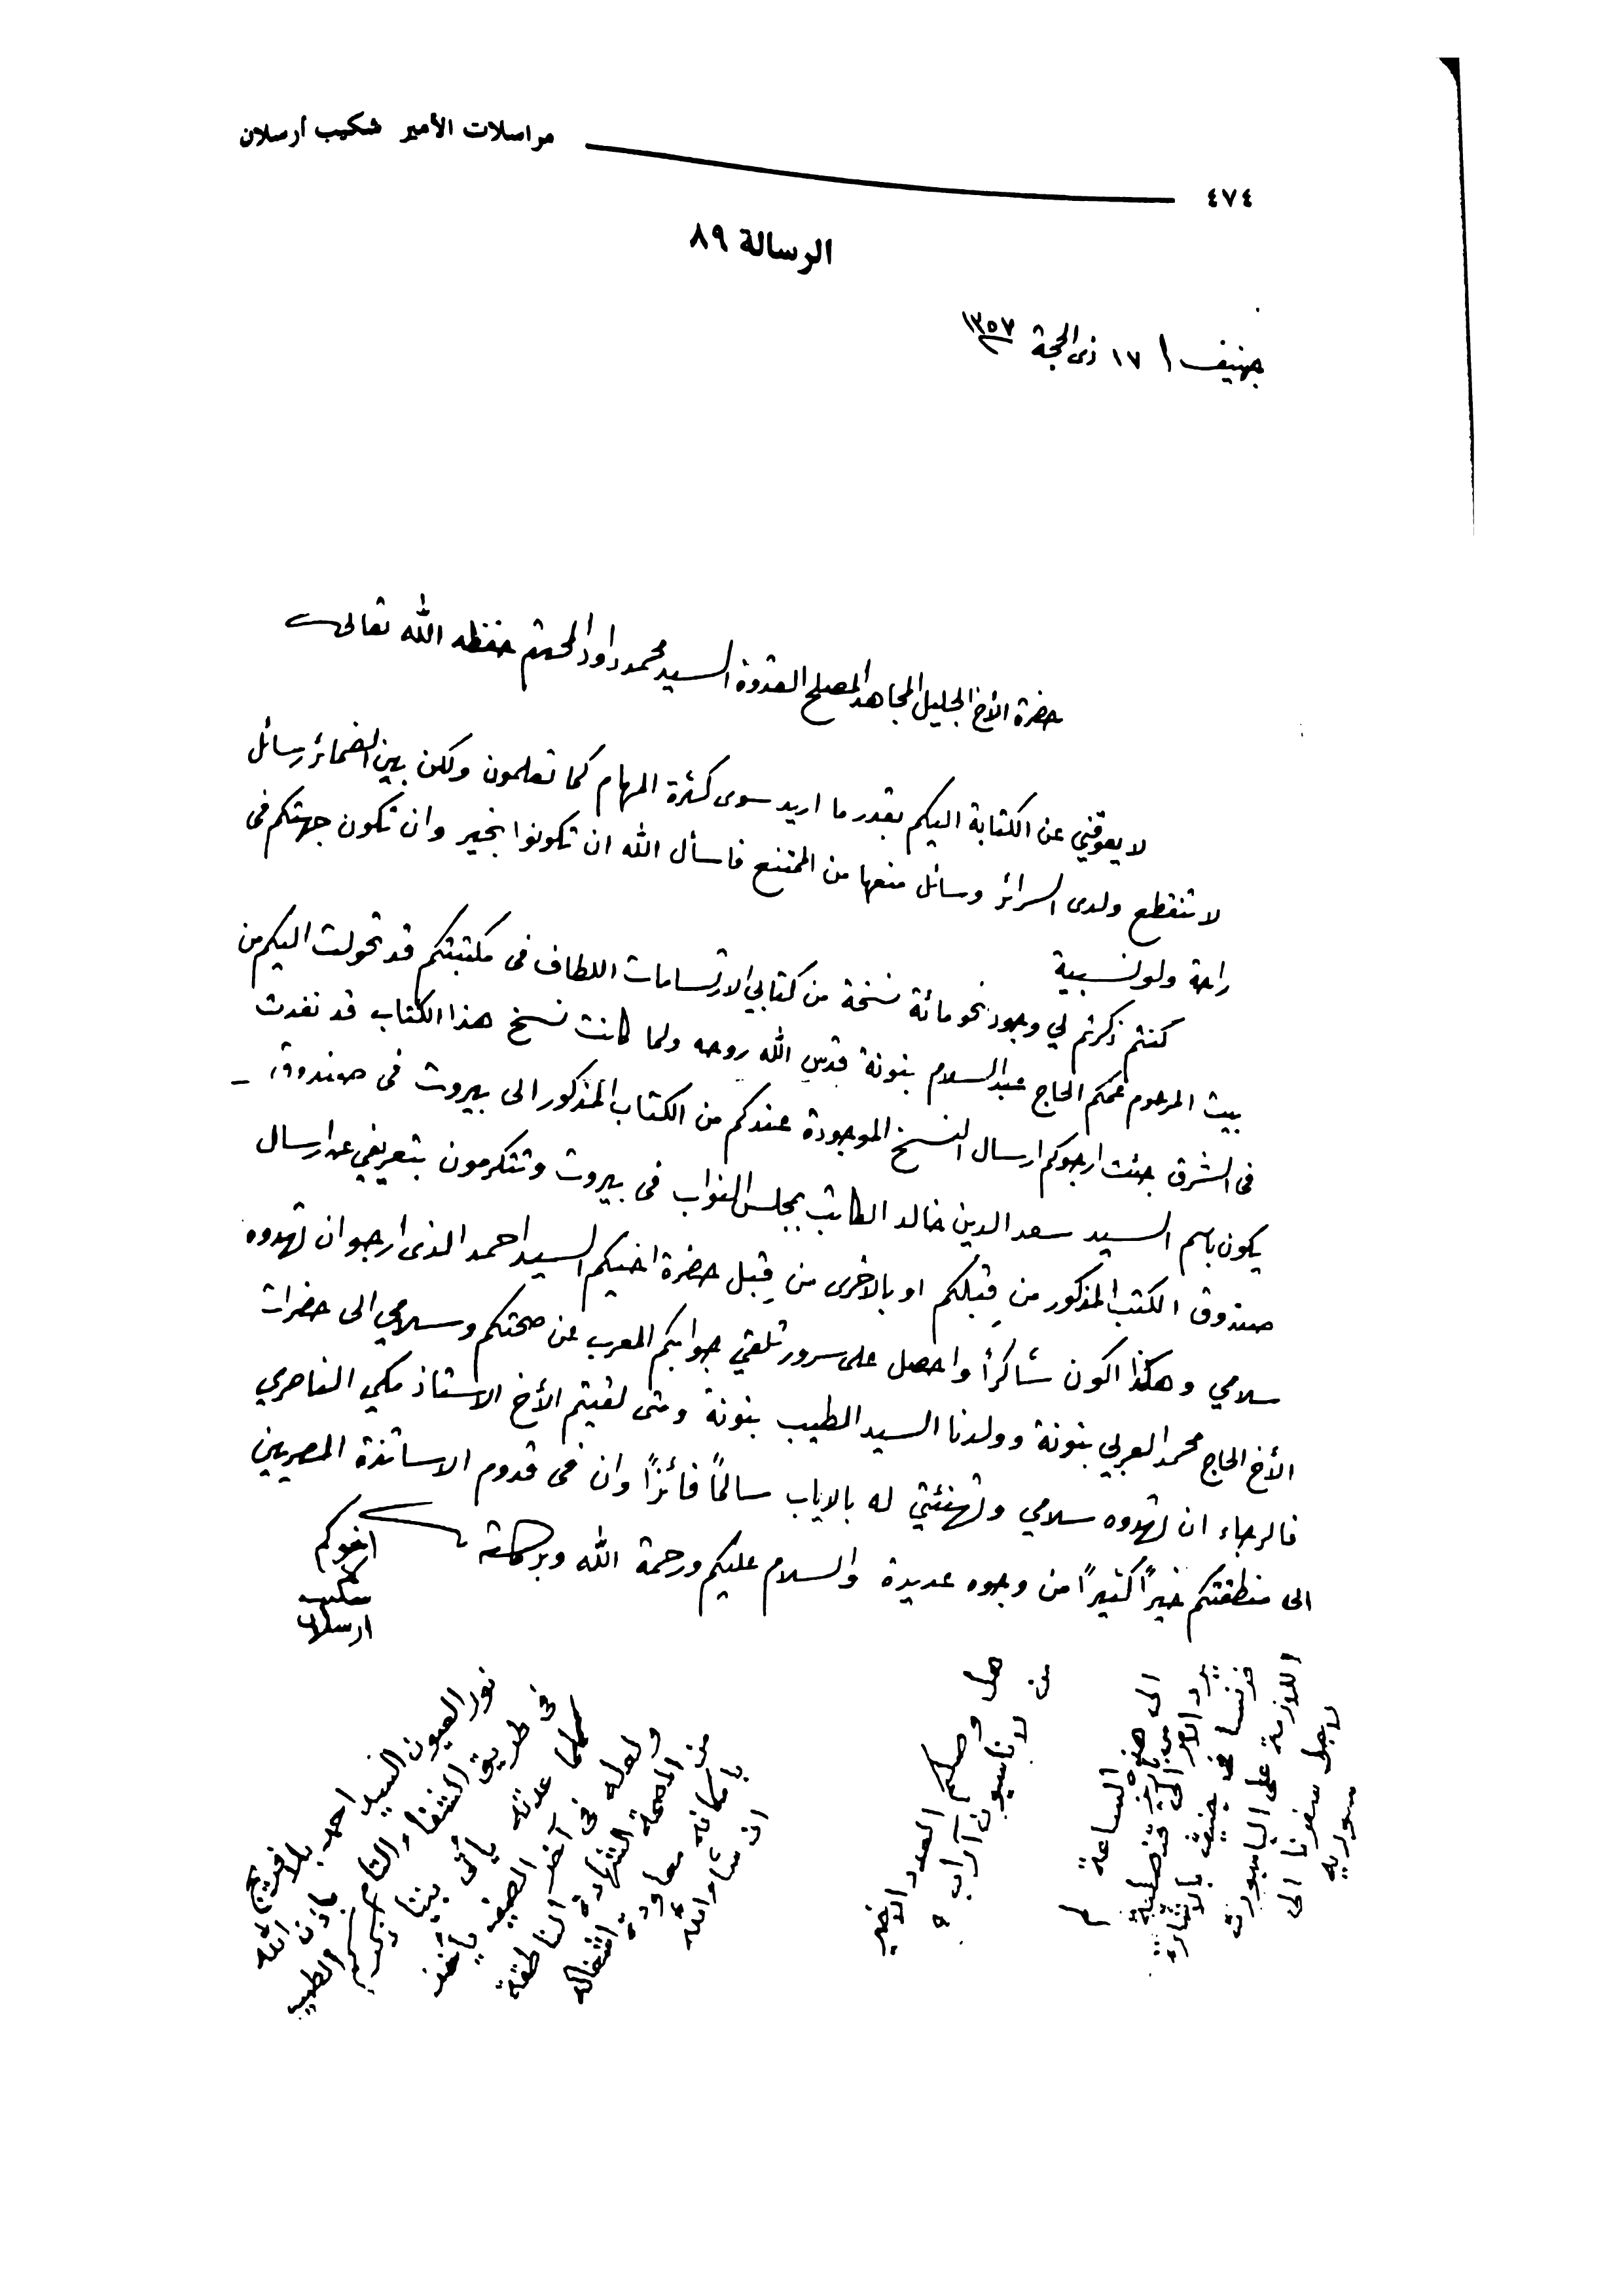 مراسلات الأمير شكيب أرسلان
٤٧٤
الرسالة ٨٩
جنيف ١٧ ذى الحجة ١٣٥٧
حضرة الأخ الجليل المجاهد المصلح القدوة السيد محمد داود المحترم حفظه الله تعالى
لا يعوقني عن الكتابة اليكم بقدر ما اريد سوى كثرة المهام كما تعلمون ولكن بين الضمائر رسائل
لا تنقطع ولدى السرائر وسائل منعها من الممتنع فاسأل الله ان تكونوا بخير وان تكون جهتكم فى
راحة ولو نسبية
كنتم ذكرتم لي وجود نحو مائة نسخة من كتابي الارتسامات اللطاف فى مكتبتكم قد تحولت اليكم من
بيت المرحوم عمكم الحاج عبد السلام بنونة قدس الله روحه ولما كانت نسخ هذا الكتاب قد نفدت
فى الشرق جئت ارجوكم ارسال النسخ الموجودة عندكم من الكتاب المذكور الى بيروت فى صندوق
يكون باسم السيد سعد الدين خالد الكاتب بمجلس النواب فى بيروت وتتكرمون بتعريفي عن ارسال
صندوق الكتب المذكور من قِبلكم او بالاحرى من قِبل حضرة اخيكم السيد احمد الذى أرجو ان تهدوه
سلامي وهكذا اكون شاكراً واحصل على سرور تلقي جوابكم المعرب عن صحتكم وسلامي الى حضرات
الأخ الحاج محمد العربي بنونة وولدنا السيد الطيب بنونة ومتى لقيتم الأخ الاستاذ مكي الناصري
فالرجاء ان تهدوه سلامي وتهنئتي له بالاياب سالماً فائزاً وان فى قدوم الاساتذة المصريين
الى منطقتكم خيراً كثيراً من وجوه عديدة والسلام عليكم ورحمة الله وبركاته
اخوكم
شكيب
ارسلان
الى هذه الساعة لم
يرد الامر من باريز الى قنصلية
فرنسا فى جنيف بالاشارة
اللازمة على الباسبورت
لاجل سفرنا الى
سورية
هل وصلكم العدد الاخير
من لاناسيون آراب ؟
نور العيون السيد احمد بلافريج
فى طريق الشفاء التام باذن الله
كلما عدته يأتى بيننا ذكركم والطيب
ولعله فى آخر الصيف يأخذ
من الصحة الشهادة الناطقة
بإمكانه معاودة اشغاله
ان شاء الله